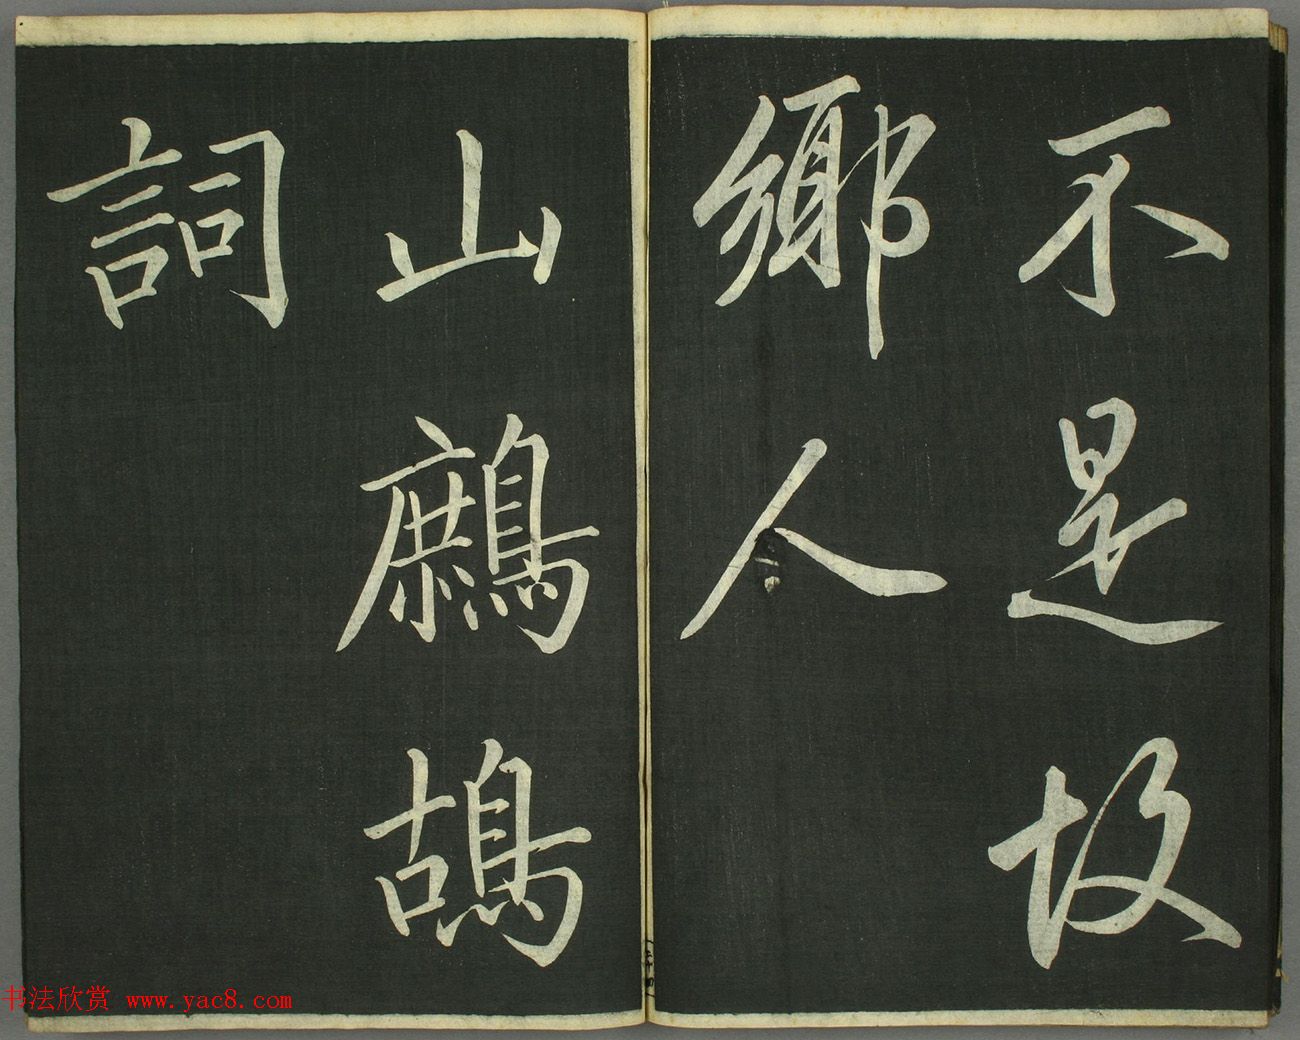 不是故
鄉人
山鷓鴣
詞
书法欣赏 www.yac8.com